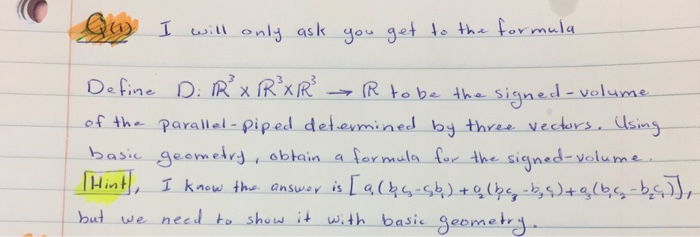 Q(1) I will only ask you get to the formula
Define D: ℝ³ x ℝ³ x ℝ³ → ℝ to be the signed-volume
of the parallel-piped determined by three vectors. Using
basic geometry, obtain a formula for the signed-volume.
[Hint], I know the answer is [a₁(b₂c₃-c₂b₃)+a₂(b₁c₃-b₃c₁)+a₃(b₁c₂-b₂c₁)],
but we need to show it with basic geometry.